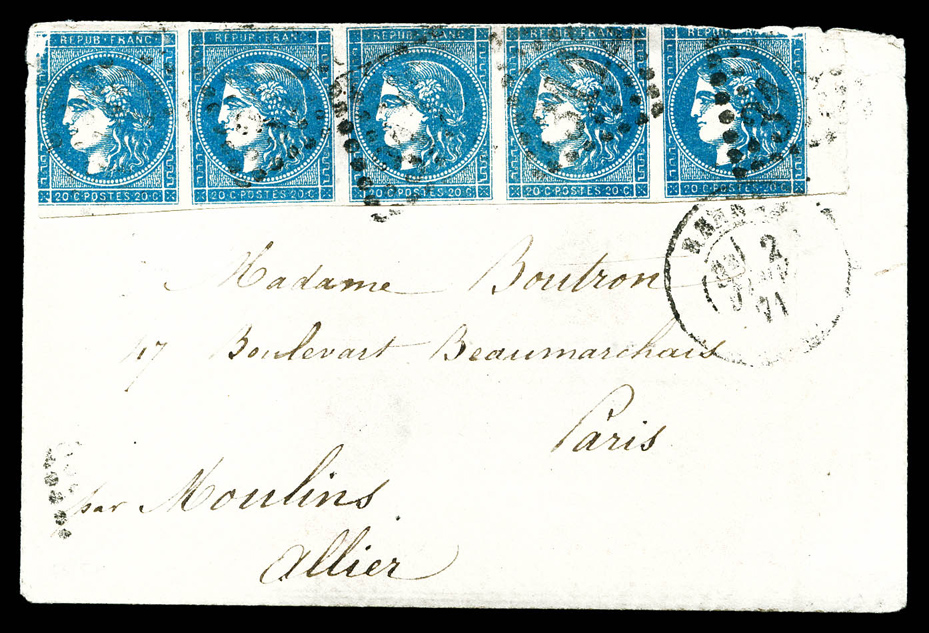 REPUB·FRANC REPUB·FRANC REPUB·FRANC REPUB·FRANC REPUB·FRANC
20·C·POSTES·20·C 20·C·POSTES·20·C 20·C·POSTES·20·C 20·C·POSTES·20·C 20·C·POSTES·20·C
2
71
Madame Boutron
17 Boulevart Beaumarchais
Paris
par Moulins
Allier